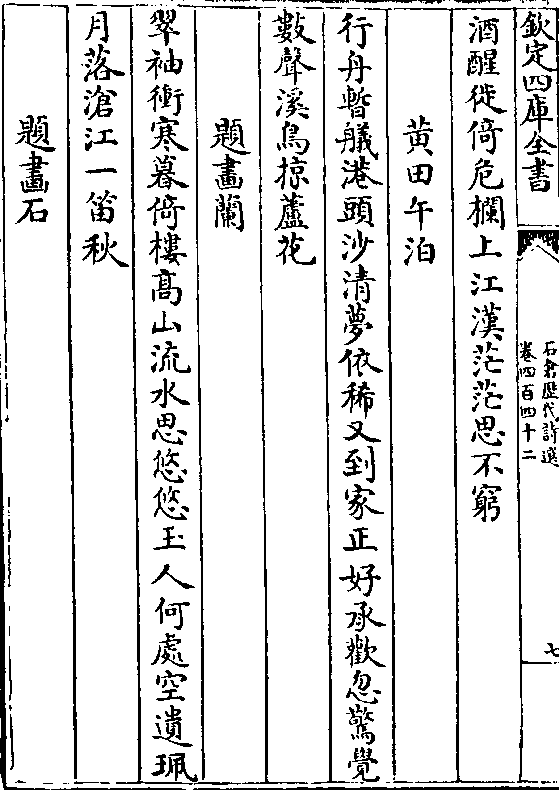 欽定四庫全書
石倉歴代詩選
卷四百四十二
七
酒醒徙倚危欄上江漢茫茫思不窮
黄田午泊
行舟暫艤港頭沙清夢依稀又到家正好承歡忽驚覺
數聲溪鳥掠蘆花
題畫蘭
翠袖衝寒暮倚樓髙山流水思悠悠玉人何處空遺珮
月落滄江一笛秋
題畫石